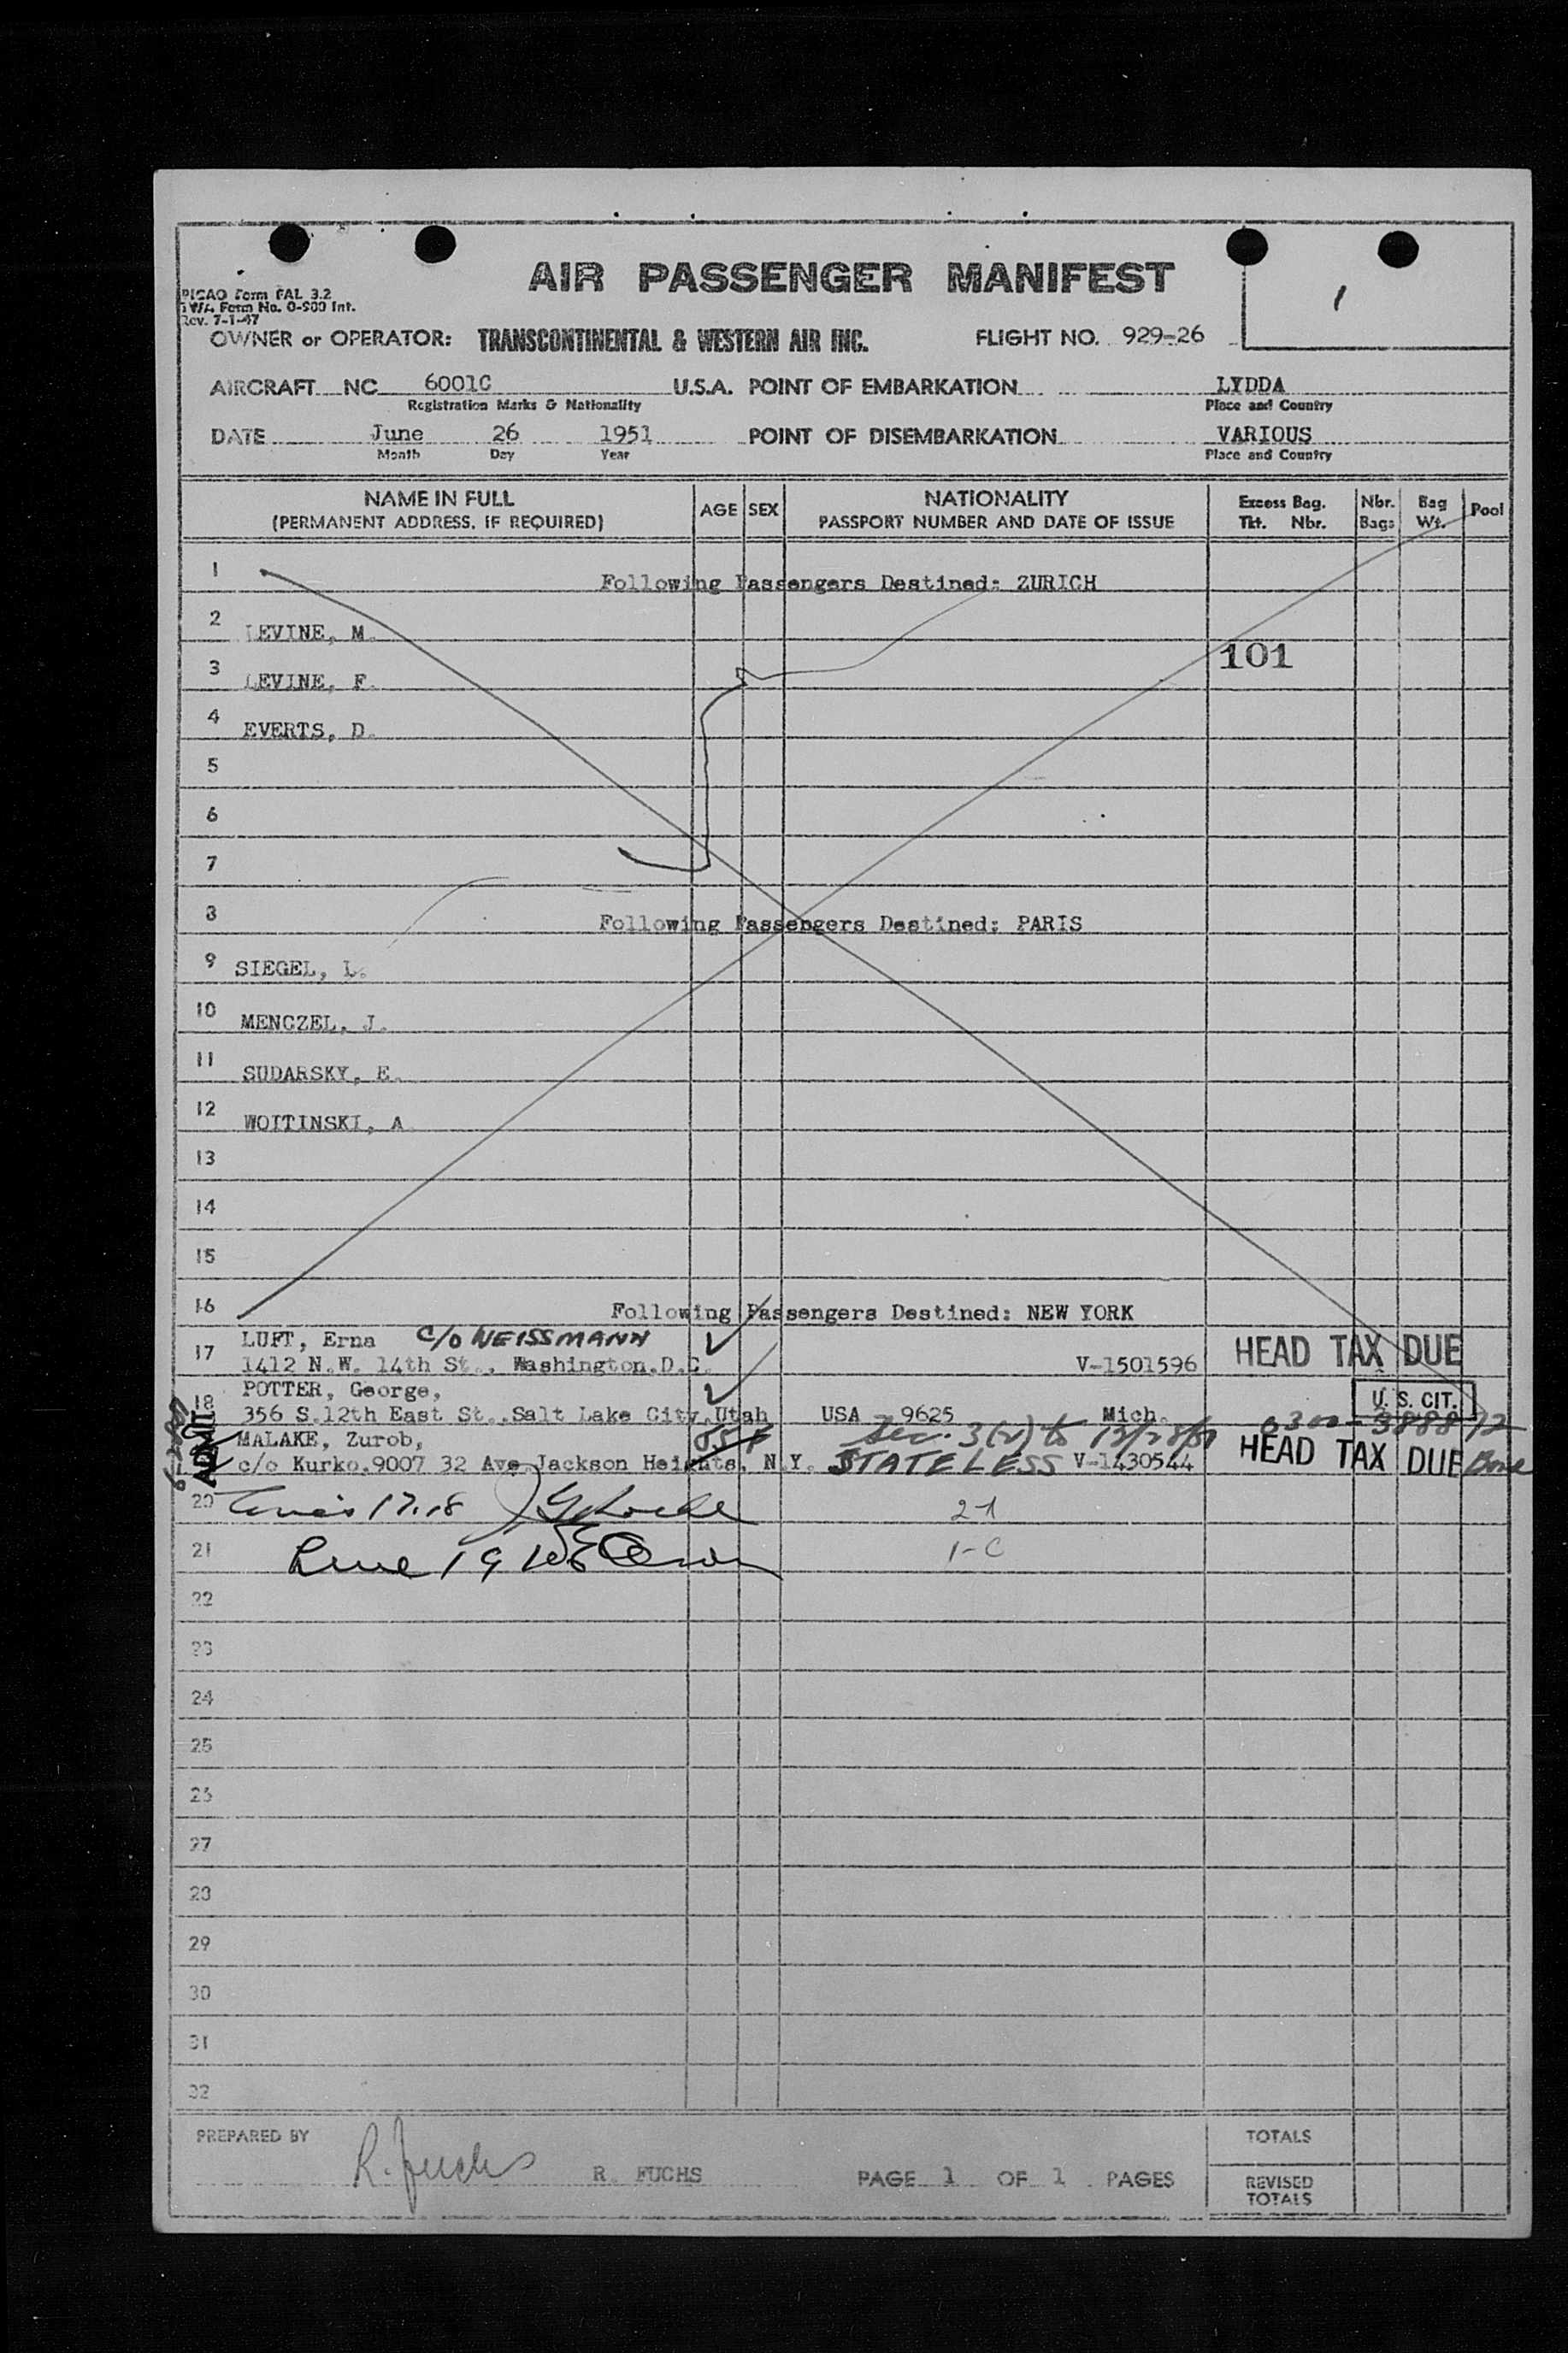 AIR PASSENGER MANIFEST
PICAO Form FAL 3.2
TWA Form No. O-900 Int.
Rev. 7-1-47
1
OWNER or OPERATOR: TRANSCONTINENTAL & WESTERN AIR INC. FLIGHT NO. 929-26
AIRCRAFT NC 6001C U.S.A. POINT OF EMBARKATION LYDDA
Registration Marks & Nationality Place and Country
DATE June 26 1951 POINT OF DISEMBARKATION VARIOUS
Month Day Year Place and Country
NAME IN FULL AGE SEX NATIONALITY Excess Bag. Nbr. Bag Pool
(PERMANENT ADDRESS, IF REQUIRED) PASSPORT NUMBER AND DATE OF ISSUE Tkt. Nbr. Bags Wt.
1 Following Passengers Destined: ZURICH
2 LEVINE, M.
101
3 LEVINE, F.
4 EVERTS, D.
5
6
7
8 Following Passengers Destined: PARIS
9 SIEGEL, L.
10 MENCZEL, J.
11 SUDARSKY, E.
12 WOITINSKI, A
13
14
15
16 Following Passengers Destined: NEW YORK
17 LUFT, Erna C/O WEISSMANN HEAD TAX DUE
1412 N.W. 14th St., Washington.D.C. V-1501596
18 POTTER, George, U. S. CIT.
356 S.12th East St.,Salt Lake City,Utah USA 9625 Mich.
ADMIT
MALAKE, Zurob, 55 F Sec. 3(2) to 12/28/51 0300-
c/o Kurko.9007 32 Ave Jackson Heights, N.Y. STATELESS V-1430544 HEAD TAX DUE Bond
20 17.18 2-1
21 Line 19 1-C
22
23
24
25
26
27
28
29
30
31
32
PREPARED BY R. Fuchs R. FUCHS PAGE 1 OF 1 PAGES TOTALS
REVISED
TOTALS